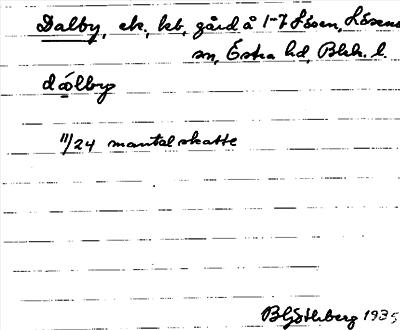 Dalby, ek., kb, gård å 1-7 Lösen, Lösens
sn, Östra hd, Blek. l.
dálby
11/24 mantal skatte
1935